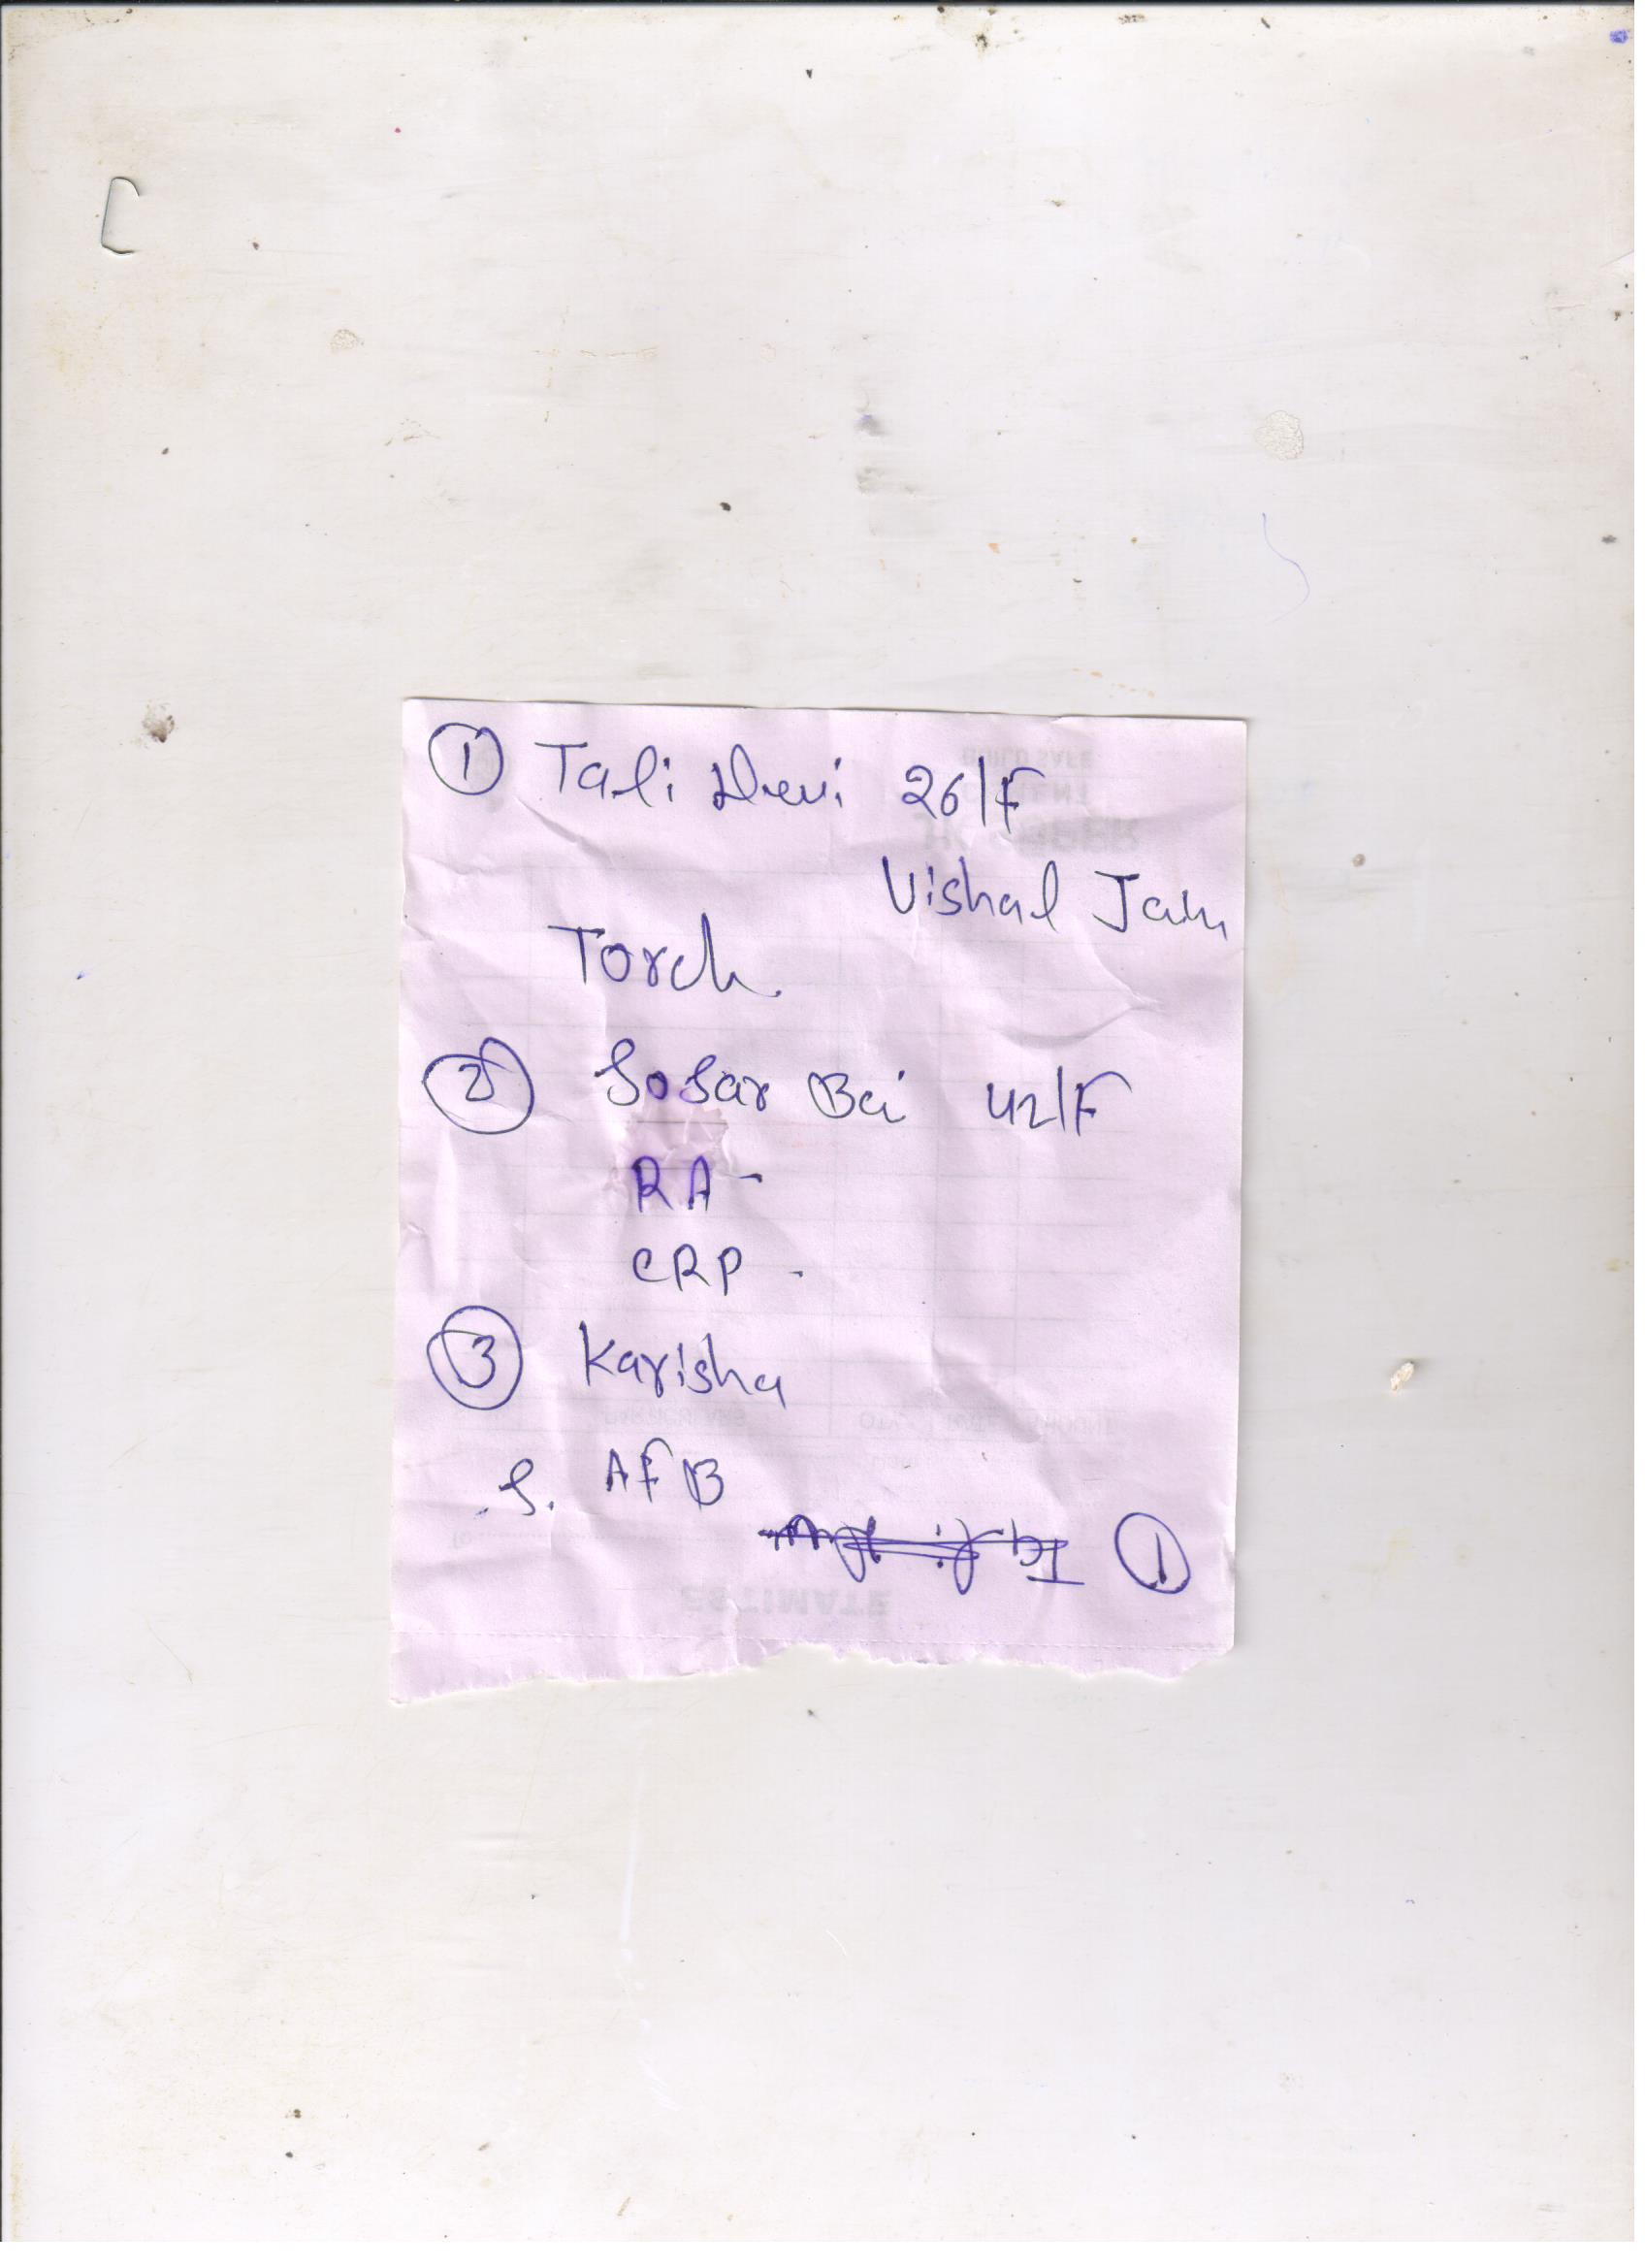 ① Tali Devi 26/F
Vishal Jain
Torch
② Sosar Bai 42/F
RA -
CRP -
③ Karisha
S. AFB
①
ESTIMATE